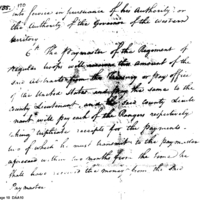 into service in pursuance of his Authority: or
the Authority of the Governor of the western
territory
6th The Paymaster of the Regiment of
regular troops will receive the amount of the
from the Treasury or pay office
of the United States and pay the same to the
County Lieutenant, and the said County Lieute
nant will pay each of the Rangers respectively
taking receipts for the payments -
two of which he must transmit to the paymaster
aforesaid within two months from the time he
shall have received the money from the said
Paymaster.
page 10